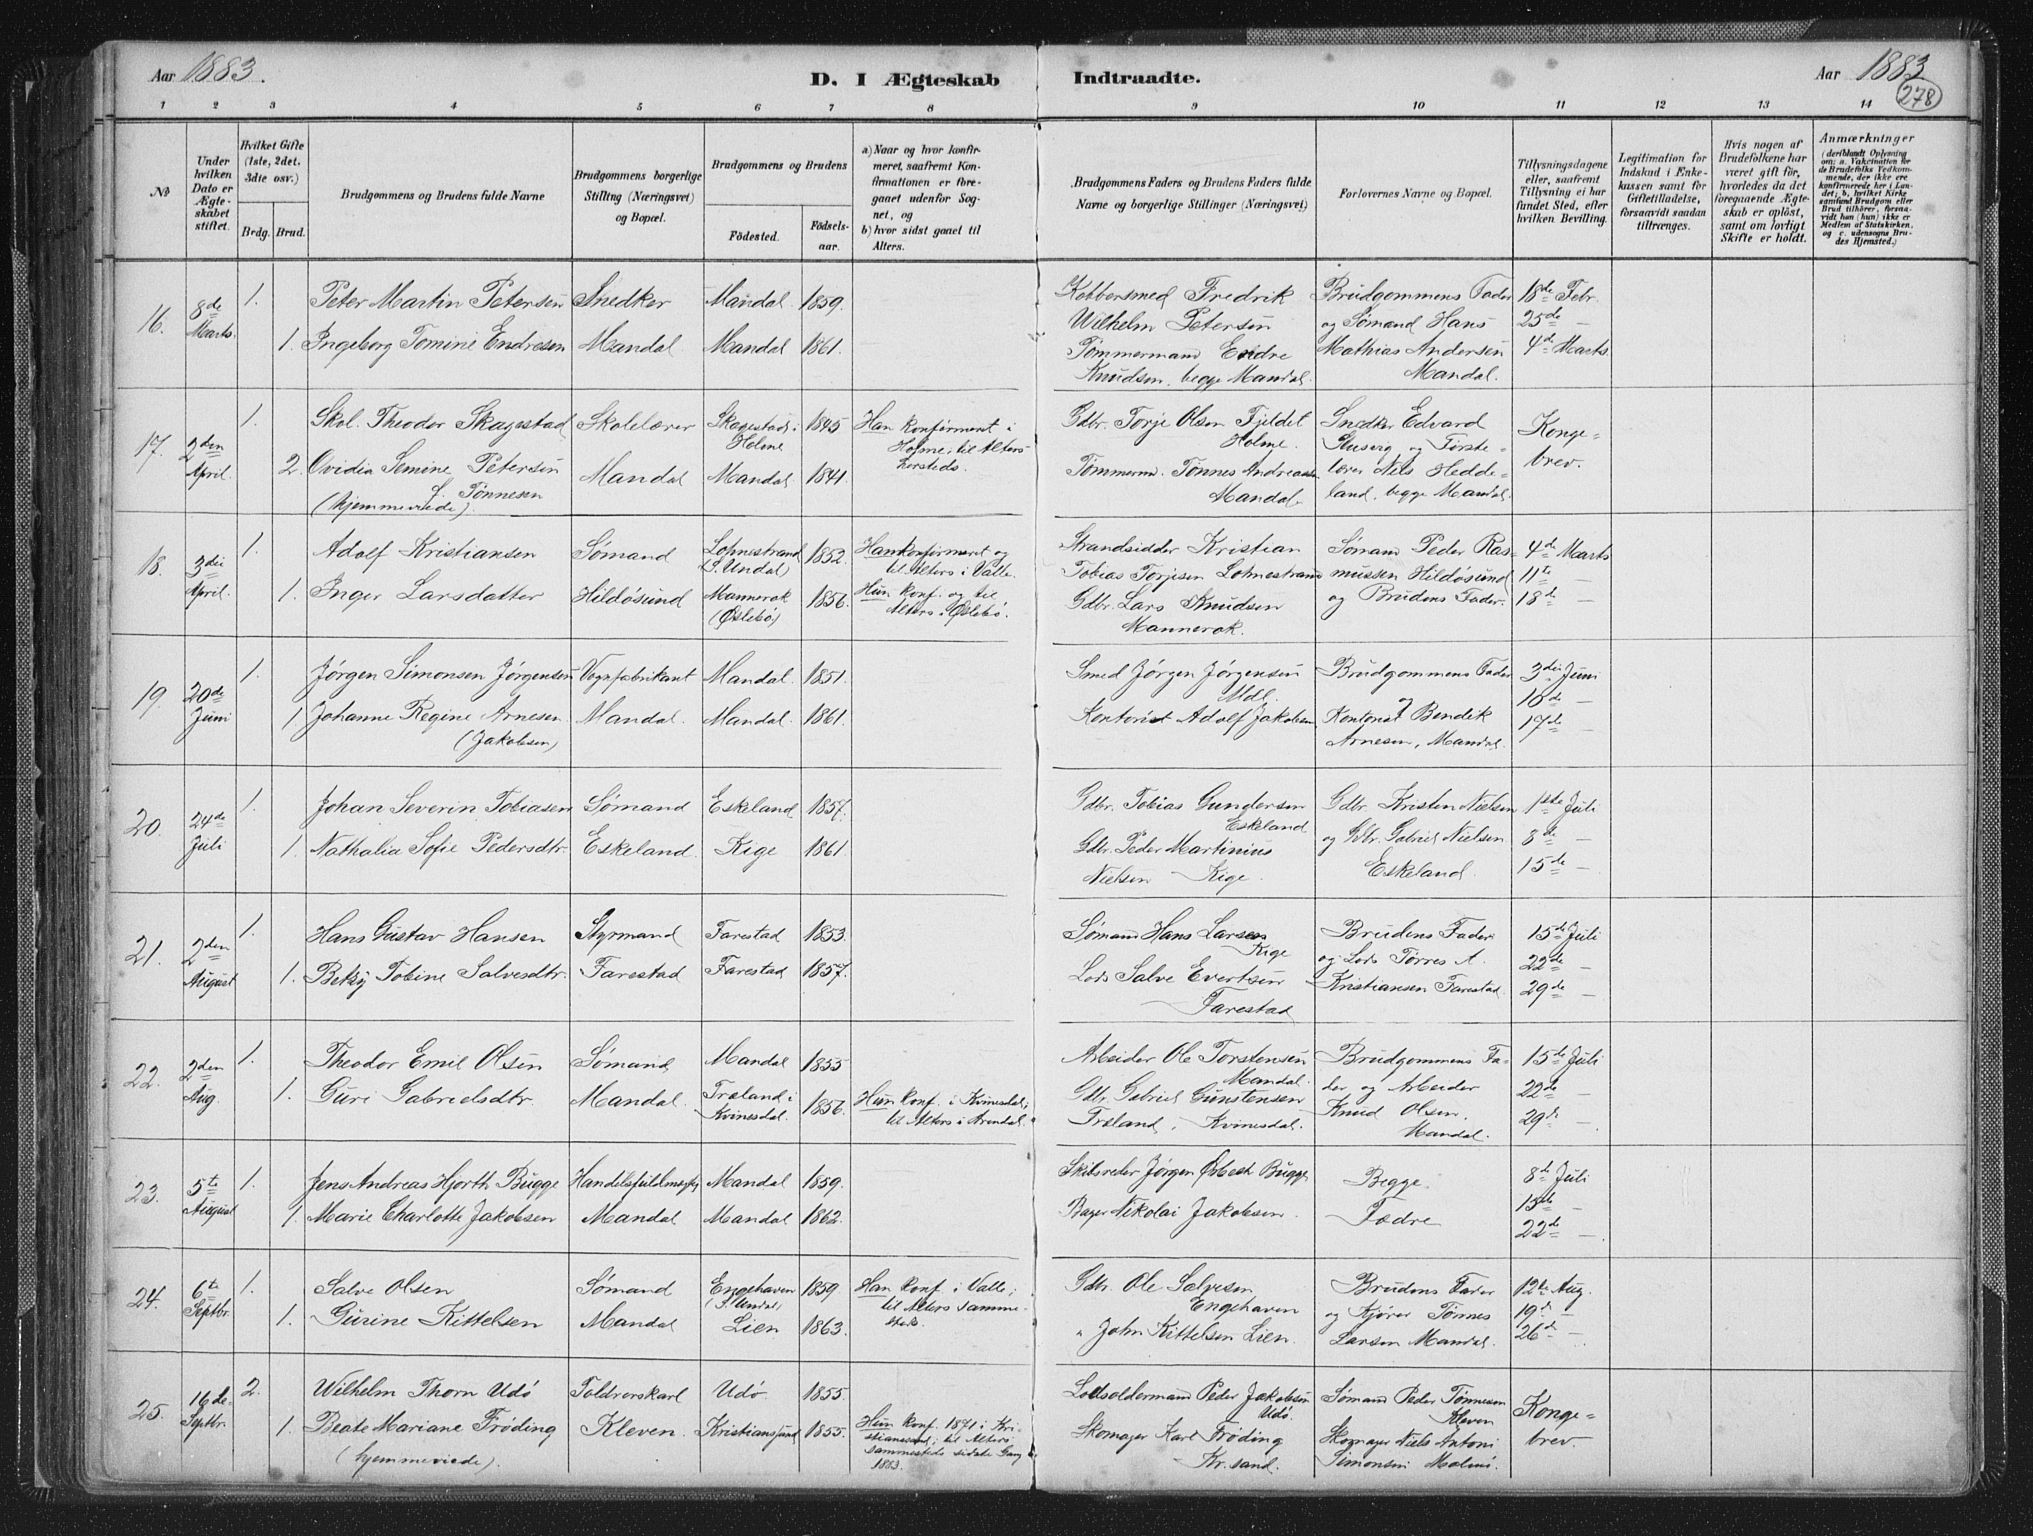 Aar 1883.
D. I Ægteskab Indtraadte.
Aar 1883
278
1 2 3 4 5 6 7 8 9 10 11 12 13 14
No
Under hvilken Dato er Ægteskabet stiftet.
Hvilket Gifte (1ste, 2det, 3die osv.)
Brdg. Brud.
Brudgommens og Brudens fulde Navne
Brudgommens borgerlige Stilling (Næringsvei) og Bopæl.
Brudgommens og Brudens
Födested.
Födsels-aar.
a) Naar og hvor konfirmeret, saafremt Konfirmationen er foregaaet udenfor Sognet, og
b) hvor sidst gaaet til Alters.
Brudgommens Faders og Brudens Faders fulde Navne og borgerlige Stillinger (Næringsvei)
Forlovernes Navne og Bopæl.
Tillysningsdagene eller, saafremt Tillysning ei har fundet Sted, efter hvilken Bevilling.
Legitimation for Indskud i Enkekassen samt for Giftetilladelse, forsaavidt saadan tiltrænges.
Hvis nogen af Brudefolkene har været gift før, hvorledes da det foregaaende Ægteskab er oplöst, samt om lovligt Skifte er holdt.
Anmærkninger
(deriblandt Oplysning om: a. Vakcination for de Brudefolks Vedkommende, der ikke ere konfirmerede her i Landet; b. hvilket Kirkesamfund Brudgom eller Brud tilhörer, forsaavidt han (hun) ikke er Medlem af Statskirken, og c. udensogns Brudes Hjemsted.)
16. 8de Marts. 1. Peter Martin Petersen Snedker Mandal 1859. Kobbersmed Fredrik Brudgommens Fader 18de Febr.
Wilhelm Petersen og Sømand Hans 25de —
1. Ingeborg Tomine Endresen Mandal Mandal 1861. Tømmermand Endre Mathias Andersen 4de Marts.
Knudsen, begge Mandal. Mandal.
17. 2den April. 1. Skol. Theodor Skagestad Skolelærer Skagestad i Holme 1845 Han konfirmeret i Holme, til Alters hersteds. Gdbr. Torje Olsen Fjeldet Holme. Snedker Edvard Konge-
2. Ovidia Semine Petersen Mandal Mandal 1841. Tømmerm. Tønnes Andreassen Mandal. og Første-lærer Nils Hedde-land, begge Mandal. brev.
f. Tønnesen
(hjemmeviede).
18. 3die April. 1. Adolf Kristiansen Sømand Lohnestrand (S. Undal) 1852. Han konfirmeret og til Alters i Valle. Strandsidder Kristian Sømand Peder Ras- 4de Marts
Tobias Torjesen Lohnestrand mussen Hildøsund 11te —
1. Inger Larsdatter Hildøsund Mannerok (Øslebø) 1856. Hun konf. og til Alters i Øslebø. Gdbr. Lars Knudsen og Brudens Fader. 18de —
Mannerok.
19. 20de Juni 1. Jørgen Simonsen Jørgensen Vognfabrikant Mandal. 1851. Smed Jørgen Jørgensen Mdl. Brudgommens Fader 3die Juni
og 10de —
1. Johanne Regine Arnesen Mandal. Mandal. 1861. Kontorist Adolf Jakobsen Kontorist Bendik 17de —
(Jakobsen) Arnesen, Mandal.
20. 24de Juli 1. Johan Severin Tobiasen Sømand Eskeland 1857. Gdbr. Tobias Gundersen Eskeland Gdbr Kristen Nielsen 1ste Juli
og Gdbr. Gabriel Nielsen 8de —
1. Nathalia Sofie Pedersdtr. Eskeland. Kige 1861. Gdbr. Peder Martinius Nielsen Kige. Eskeland. 15de —
21. 2den August 1. Hans Gustav Hansen Styrmand Farestad 1853. Sømand Hans Larsen Kige Brudens Fader 15de Juli
og Lods Tørres A. 22de —
1. Betsy Tobine Salvesdtr. Farestad Farestad 1857. Lods Salve Evertsen Farestad Kristiansen Farestad. 29de —
22. 2den Aug. 1. Theodor Emil Olsen Sømand Mandal 1855 Arbeider Ole Torstensen Mandal. Brudgommens Fa- 15de Juli
der og Arbeider 22de —
1. Guri Gabrielsdtr. Mandal. Træland i Kvinesdal. 1856. Hun konf. i Kvinesdal; til Alters i Arendal. Gdbr. Gabriel Gunstensen Træland, Kvinesdal. Knud Olsen. Mandal. 29de —
23. 5te August 1. Jens Andreas Hjorth Bugge Handelsfuldmægtig Mandal 1859. Skibsreder Jørgen Bugge Begge 8de Juli
15de
1. Marie Charlotte Jakobsen Mandal Mandal 1862. Bager Nikolai Jakobsen. Fædre 22de —
24. 6te Septbr. 1. Salve Olsen Sømand Engehaven (S. Undal) 1859 Han konf. i Valle; til Alters sammesteds. Gdbr. Ole Salvesen Engehaven Brudens Fader 12te Aug.
og Kjører Tønnes 19de —
1. Gurine Kittelsen Mandal Lien 1863. " John Kittelsen Lien. Larsen Mandal. 26de —
25. 16de Septbr. 2. Wilhelm Thorn Udø Toldrorskarl Udø 1855 Lodsoldermand Peder Jakobsen Udø. Sømand Peder Tønnesen Kleven Konge-
1. Beate Mariane Frøding Kleven. Kristianssund 1855. Hun konf. 1871 i Kristianssund; til Alters sammesteds sidste Gang 1883. Skomager Karl Frøding Kr.sand. Skomager Niels Antoni Simonsen brev.
(hjemmeviede).